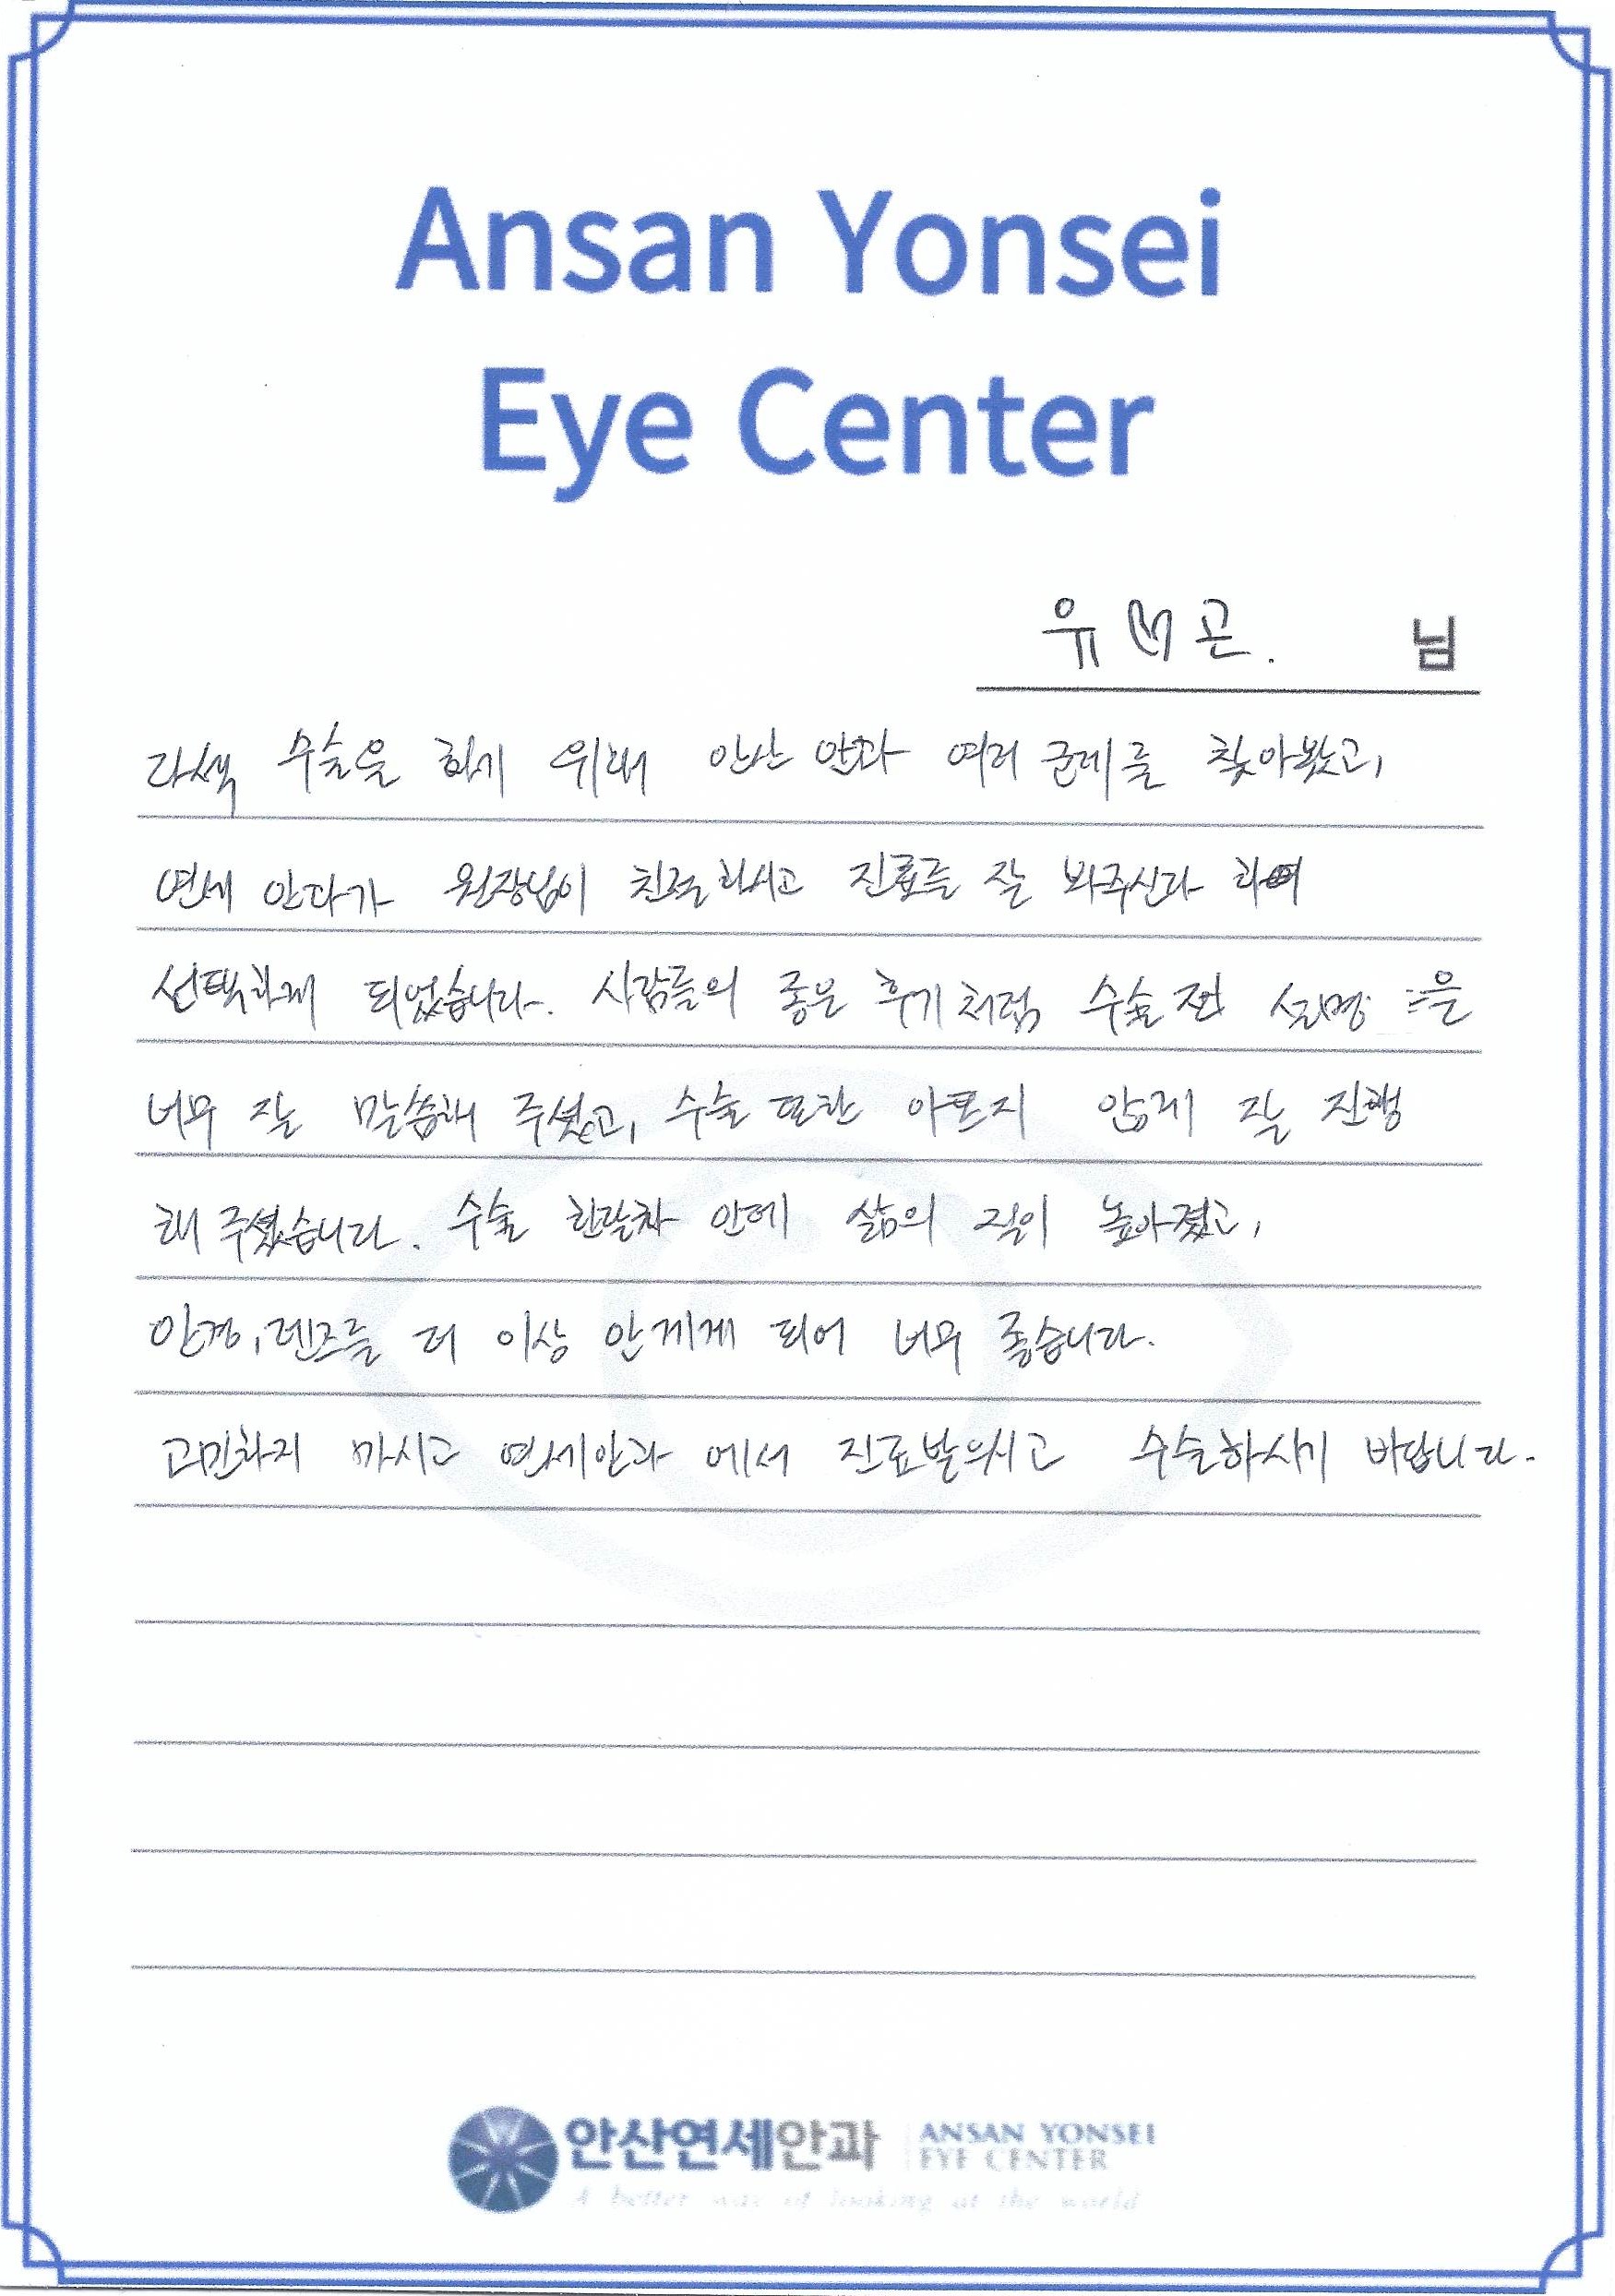 Ansan Yonsei
Eye Center
유 곤. 님
라섹 수술을 하기 위해 안산 안과 여러 군데를 찾아봤고,
연세 안과가 원장님이 친절하시고 진료를 잘 봐주신다 하여
선택하게 되었습니다. 사람들의 좋은 후기처럼 수술 전 설명은
너무 잘 말씀해 주셨고, 수술 또한 아프지 않게 잘 진행
해 주셨습니다. 수술 한달차 안에 삶의 질이 높아졌고,
안경, 렌즈를 더 이상 안 끼게 되어 너무 좋습니다.
고민하지 마시고 연세안과 에서 진료받으시고 수술하시기 바랍니다.
안산연세안과 ANSAN YONSEI
EYE CENTER
A better way of looking at the world